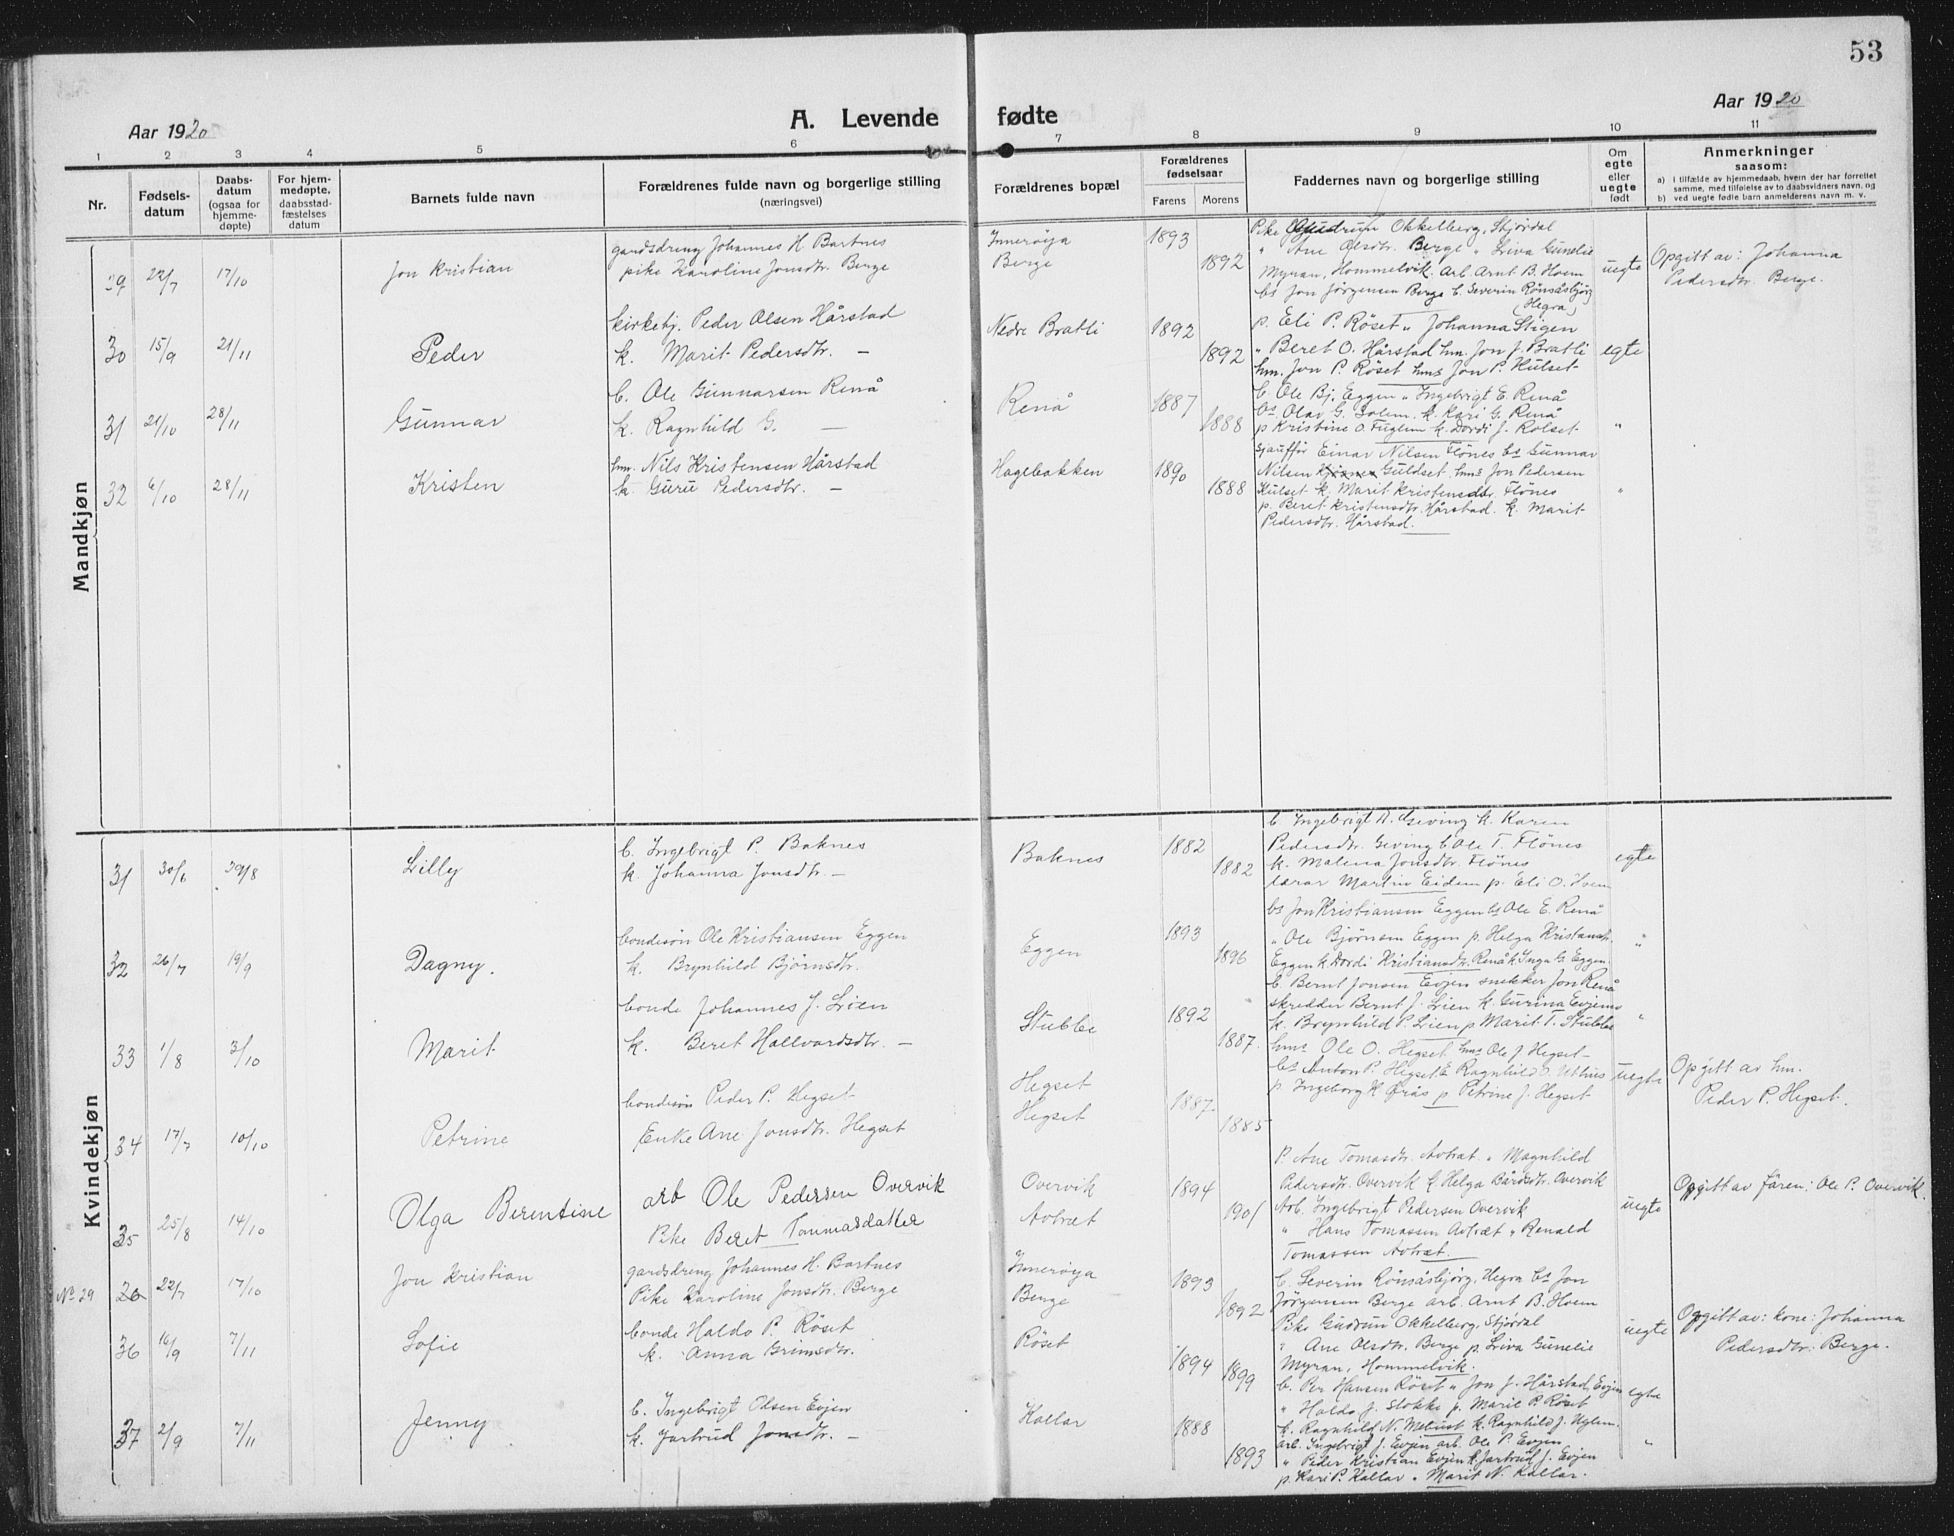 53
Aar 1920
A. Levende fødte
Aar 1920
1 2 3 4 5 6 7 8 9 10 11
Nr.
Fødsels-
datum
Daabs-
datum
(ogsaa for
hjemme-
døpte)
For hjem-
medøpte,
daabsstad-
fæstelses
datum
Barnets fulde navn
Forældrenes fulde navn og borgerlige stilling
(næringsvei)
Forældrenes bopæl
Forældrenes
fødselsaar
Farens Morens
Faddernes navn og borgerlige stilling
Om
egte
eller
uegte
født
Anmerkninger
saasom:
a) i tilfælde av hjemmedaab, hvem der har forrettet
samme, med tilføielse av to daabsvidners navn, og
b) ved uegte fødte barn anmelderens navn m. v.
Mandkjøn
29 22/7 17/10 Jon Kristian
gardsdreng Johannes H. Bartnes
pike Karoline Jonsdtr. Berge
Innerøya
Berge
1893
1892
Pike Gudrun Okkelberg, Stjørdal
" Ane Olsdtr. Berge " Liva Gunelie
Myran, Hommelvik. Arb. Arnt B. Hoem
bs Jon Jörgensen Berge b. Severin Rönsåsbjörg
(Hegra)
uegte
Opgitt av: Johanna
Pedersdtr. Berge.
30 15/9 21/11 Peder
kirketj. Peder Olsen Hårstad
k. Marit Pedersdtr. —
Nedre Bratli
1892
1892
p. Eli P. Röset " Johanna Stigen
" Beret O. Hårstad hm. Jon J. Bratli
hm. Jon P. Röset hms Jon P. Hulset
egte
31 21/10 28/11 Gunnar
b. Ole Gunnarsen Renå
k. Ragnhild G. —
Renå
1887
1888
b. Ole Bj. Eggen " Ingebrigt E. Renå
bs. Olav G. Solem. k. Kari G. Renå
p Kristine O. Fuglem k. Dordi J. Rolset
"
32 6/10 28/11 Kristen
hm. Nils Kristensen Hårstad
k. Guru Pedersdtr. —
Hagebakken
1890
1888
sjauffør Einar Nilsen Flönes bs Gunnar
Nilsen Guldset. hms Jon Pedersen
Kulset k. Marit Kristensdtr. Flönes
p. Beret Kristensdtr. Hårstad. k. Marit
Pedersdtr. Hårstad.
"
Kvindekjøn
31 30/6 29/8 Lilly
b. Ingebrigt P. Baknes
k. Johanna Jonsdtr. —
Baknes
1882
1882
b. Ingebrigt A. Geving k. Karen
Pedersdtr. Geving b. Ole T. Flönes
k. Malena Jonsdtr. Flönes
lærar Martin Eidem p. Eli O. Hoem
egte
32 26/7 19/9 Dagny.
bondesön Ole Kristiansen Eggen
k. Brynhild Björnsdtr.
Eggen
1893
1896
bs Jon Kristiansen Eggen bs Ole E. Renå
" Ole Bjørnsen Eggen p. Helga Kristiansdtr.
Eggen k. Dordi Kristiansdtr. Renå k. Inga G. Eggen.
"
33 1/8 3/10 Marit
bonde Johannes J. Lien
k. Beret Hallvardsdtr. —
Stubbe
1892
1887.
b. Bernt Jonsen Evjen snekker Jon Renå
skredder Bernt J. Lien k. Gurina Evjemo
k. Brynhild P. Lien p Marit T. Stubbe
"
34 17/7 10/10 Petrine
bondesön Peder P. Hegset
Enke Ane Jonsdtr. Hegset
Hegset
Hegset
1887.
1885
hms Ole O. Hegset hms Ole J Hegset
bs Anton P. Hegset E. Ragnhild O. Uthus
p. Ingeborg K. Øfsås p Petrine J. Hegset
uegte
Opgitt av hm.
Peder P. Hegset.
35 25/8 14/10 Olga Berentine
arb Ole Pedersen Overvik
Pike Beret Tommasdatter
Overvik
Avtræt
1894
1901
P. Ane Tomasdtr. Avtræt. " Magnhild
Pedersdtr. Overvik k Helga Bårdsdtr. Overvik
Arb. Ingebrigt Pedersen Overvik
" Hans Tomassen Avtræt " Renald
Tomassen Avtræt.
uegte
Opgitt av faren: Ole P. Overvik.
No 29 26 22/7 17/10 Jon Kristian
gardsdreng Johannes H. Bartnes
Pike Karoline Jonsdtr. Berge
Innerøya
Berge
1893
1892
b. Severin Rönsåsbjörg, Hegra bs Jon
Jörgensen Berge arb. Arnt B. Hoem
Pike Gudrun Okkelberg, Stjördal
" Ane Olsdtr. Berge p. Liva Gunelie
Myran, Hommelvik.
uegte
Opgitt av: kone: Johanna
Pedersdtr. Berge.
36 16/9 7/11 Sofie
bonde Haldo P. Röset
k. Anna Grimsdtr.
Röset
1894
1899
b. Per Hansen Röset " Jon J. Hårstad, Evjen
" Haldo J. Stokke p. Marie P. Röset
k. Ragnhild N. k. Ragnhild J. Uglem
egte
37 2/9 7/11 Jenny
b. Ingebrigt Olsen Evjen
k. Jartrud Jonsdtr. —
Kallar
1888
1893
arb. Ingebrigt J. Evjen arb. Ole P. Evjen
" Peder Kristian Evjen k. Jartrud J. Evjen
p. Kari P. Kallar " Marit N. Kallar.
"